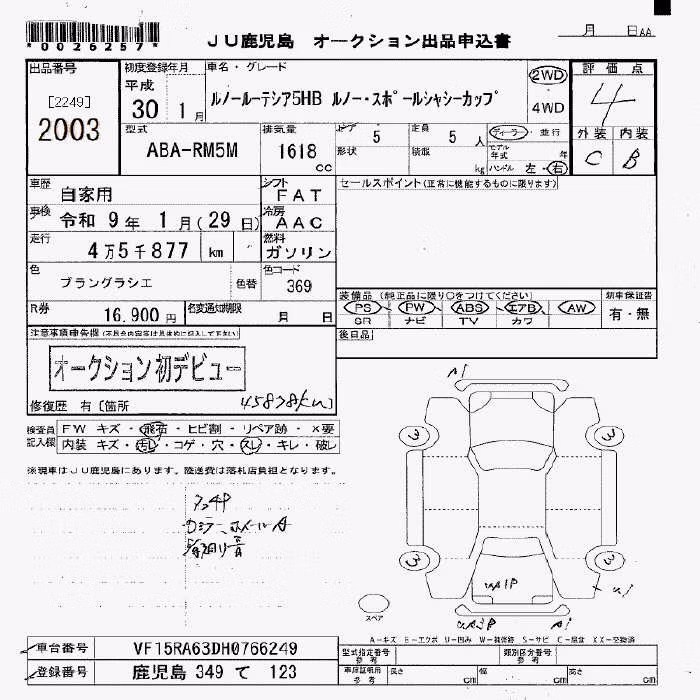 *0026257*
JU鹿児島 オークション出品申込書
月 日AA
出品番号
[2249]
2003
初度登録年月
平成
30 1月
車名・グレード
ルノールーテシア5HB ルノー・スポールシャシーカップ
2WD
4WD
評価点
4
外装 内装
C B
型式
ABA-RM5M
排気量
1618
cc
ドア
5
定員
5 人
形状
積載
kg
ディーラー・並行
モデル年式 年
ハンドル 左・右
車歴
自家用
シフト
FAT
セールスポイント(正常に機能するものに限ります)
車検
令和 9年 1月(29日)
冷房
AAC
走行
4万5千877 km
燃料
ガソリン
色
ブラングラシエ
色替
色コード
369
R券
16,900円
名変通知期限
月 日
装備品(純正品に限り○をつけてください)
PS PW ABS エアB AW
SR ナビ TV カワ
新車保証書
有・無
後日品
注意事項申告欄(不具合内容等は具体的に記入して下さい)
オークション初デビュー
修復歴 有[箇所
45878km]
検査員記入欄
FW キズ・飛石・ヒビ割・リペア跡・×要
内装 キズ・汚レ・コゲ・穴・スレ・キレ・破レ
※現車はJU鹿児島にあります。陸送費は落札店負担となります。
3
3
3
3
スペア
A-キズ E-エクボ U-凹み W-補修跡 S-サビ C-腐食 XX-交換済
車台番号
VF15RA63DH0766249
登録番号
鹿児島 349 て 123
型式指定番号
参考
類別区分番号
参考
車庫証明用
参考
長さ cm
幅 cm
高さ cm